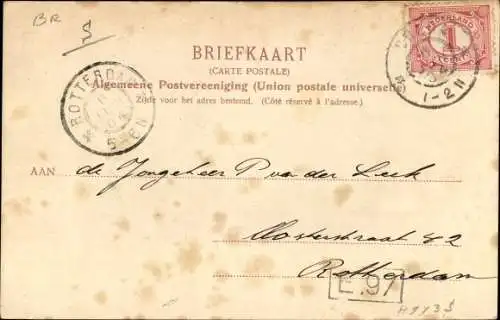 BR
S
BRIEFKAART
(CARTE POSTALE)
Algemeene Postvereeniging (Union postale universelle)
Zijde voor het adres bestemd. (Côté réservé à l'adresse.)
NEDERLAND
1
1-2N
ROTTERDAM
5-6N
AAN de Jongeheer P van der Leek
Oosterstraat 42
Rotterdam
E.97